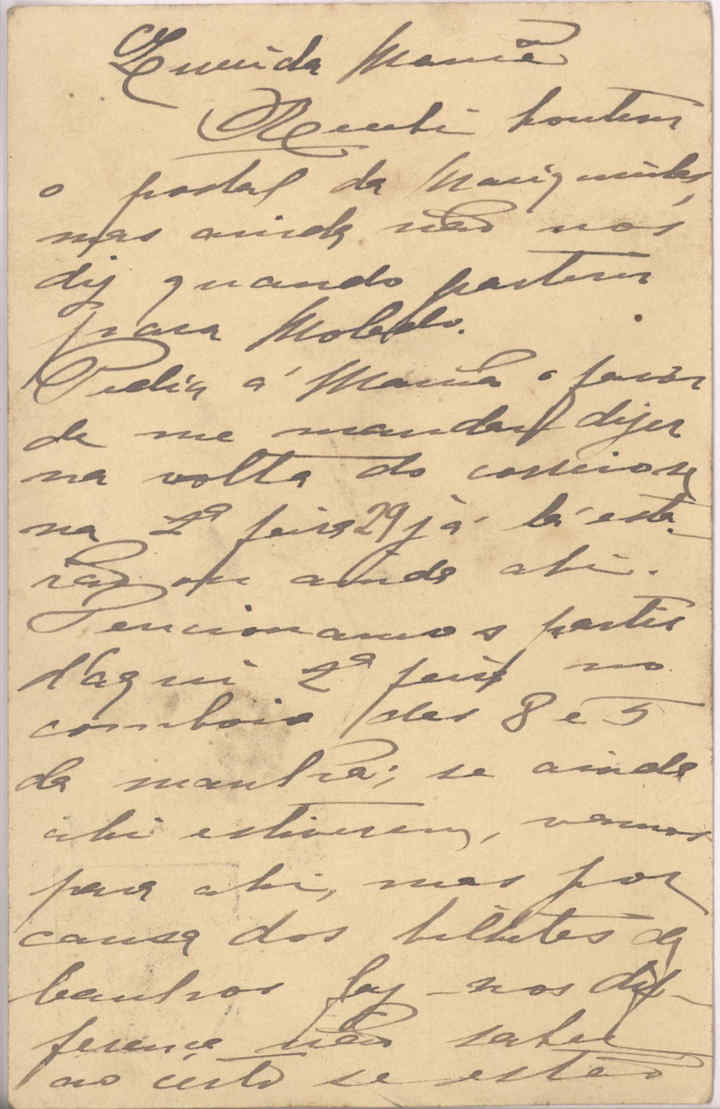 Querida Mamã
Recebi hontem
o postal da Mariquinhas,
mas ainda não nos
diz quando partem
para Moledo.
Pedia á Mamã o favor
de me mandar dizer
na volta do correio se
na 2ª feira 29 já lá esta-
rão ou ainda ahi.
Tencionamos partir
d'aqui 2ª feira no
comboio das 8 e 5
da manhã; se ainda
ahi estiverem, vamos
para ahi, mas por
causa dos bilhetes de
banhos faz-nos dif-
ferença não saber
ao certo se estão